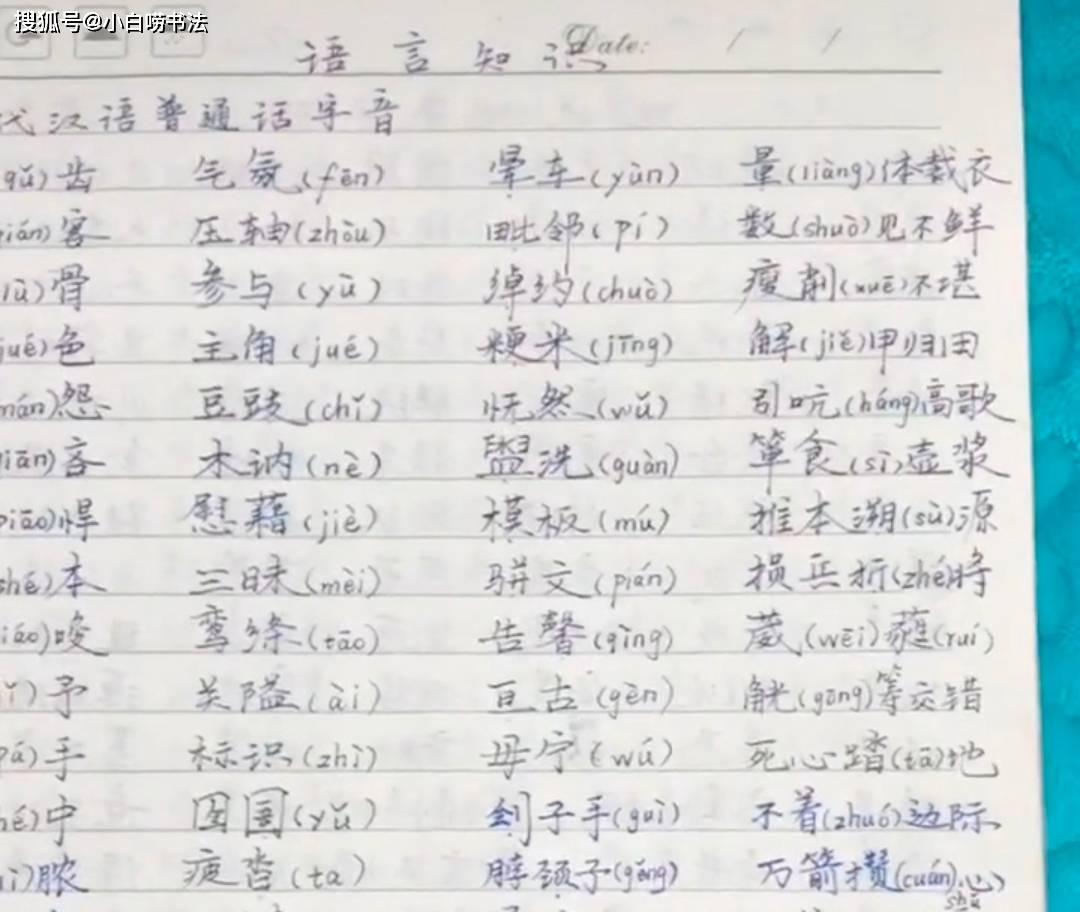 搜狐号@小白唠书法
语言知识 Date: / /
代汉语普通话字音
齿 气氛(fēn) 晕车(yùn) 量(liàng)体裁衣
客 压轴(zhòu) 毗邻(pí) 数(shuò)见不鲜
骨 参与(yù) 绰约(chuò) 瘦削(xuē)不堪
色 主角(jué) 粳米(jīng) 解(jiě)甲归田
怨 豆豉(chǐ) 怃然(wǔ) 引吭(háng)高歌
吝 木讷(nè) 盥洗(guàn) 箪食(sì)壶浆
悍 慰藉(jiè) 模板(mú) 推本溯(sù)源
本 三昧(mèi) 骈文(pián) 损兵折(zhé)将
唆 鸾绦(tāo) 告罄(qìng) 葳(wēi)蕤(ruí)
予 关隘(ài) 亘古(gèn) 觥(gōng)筹交错
手 标识(zhì) 毋宁(wú) 死心踏(tā)地
中 囹圄(yǔ) 刽子手(guì) 不着(zhuó)边际
脓 疲沓(ta) 脖颈子(gěng) 万箭攒(cuán)心